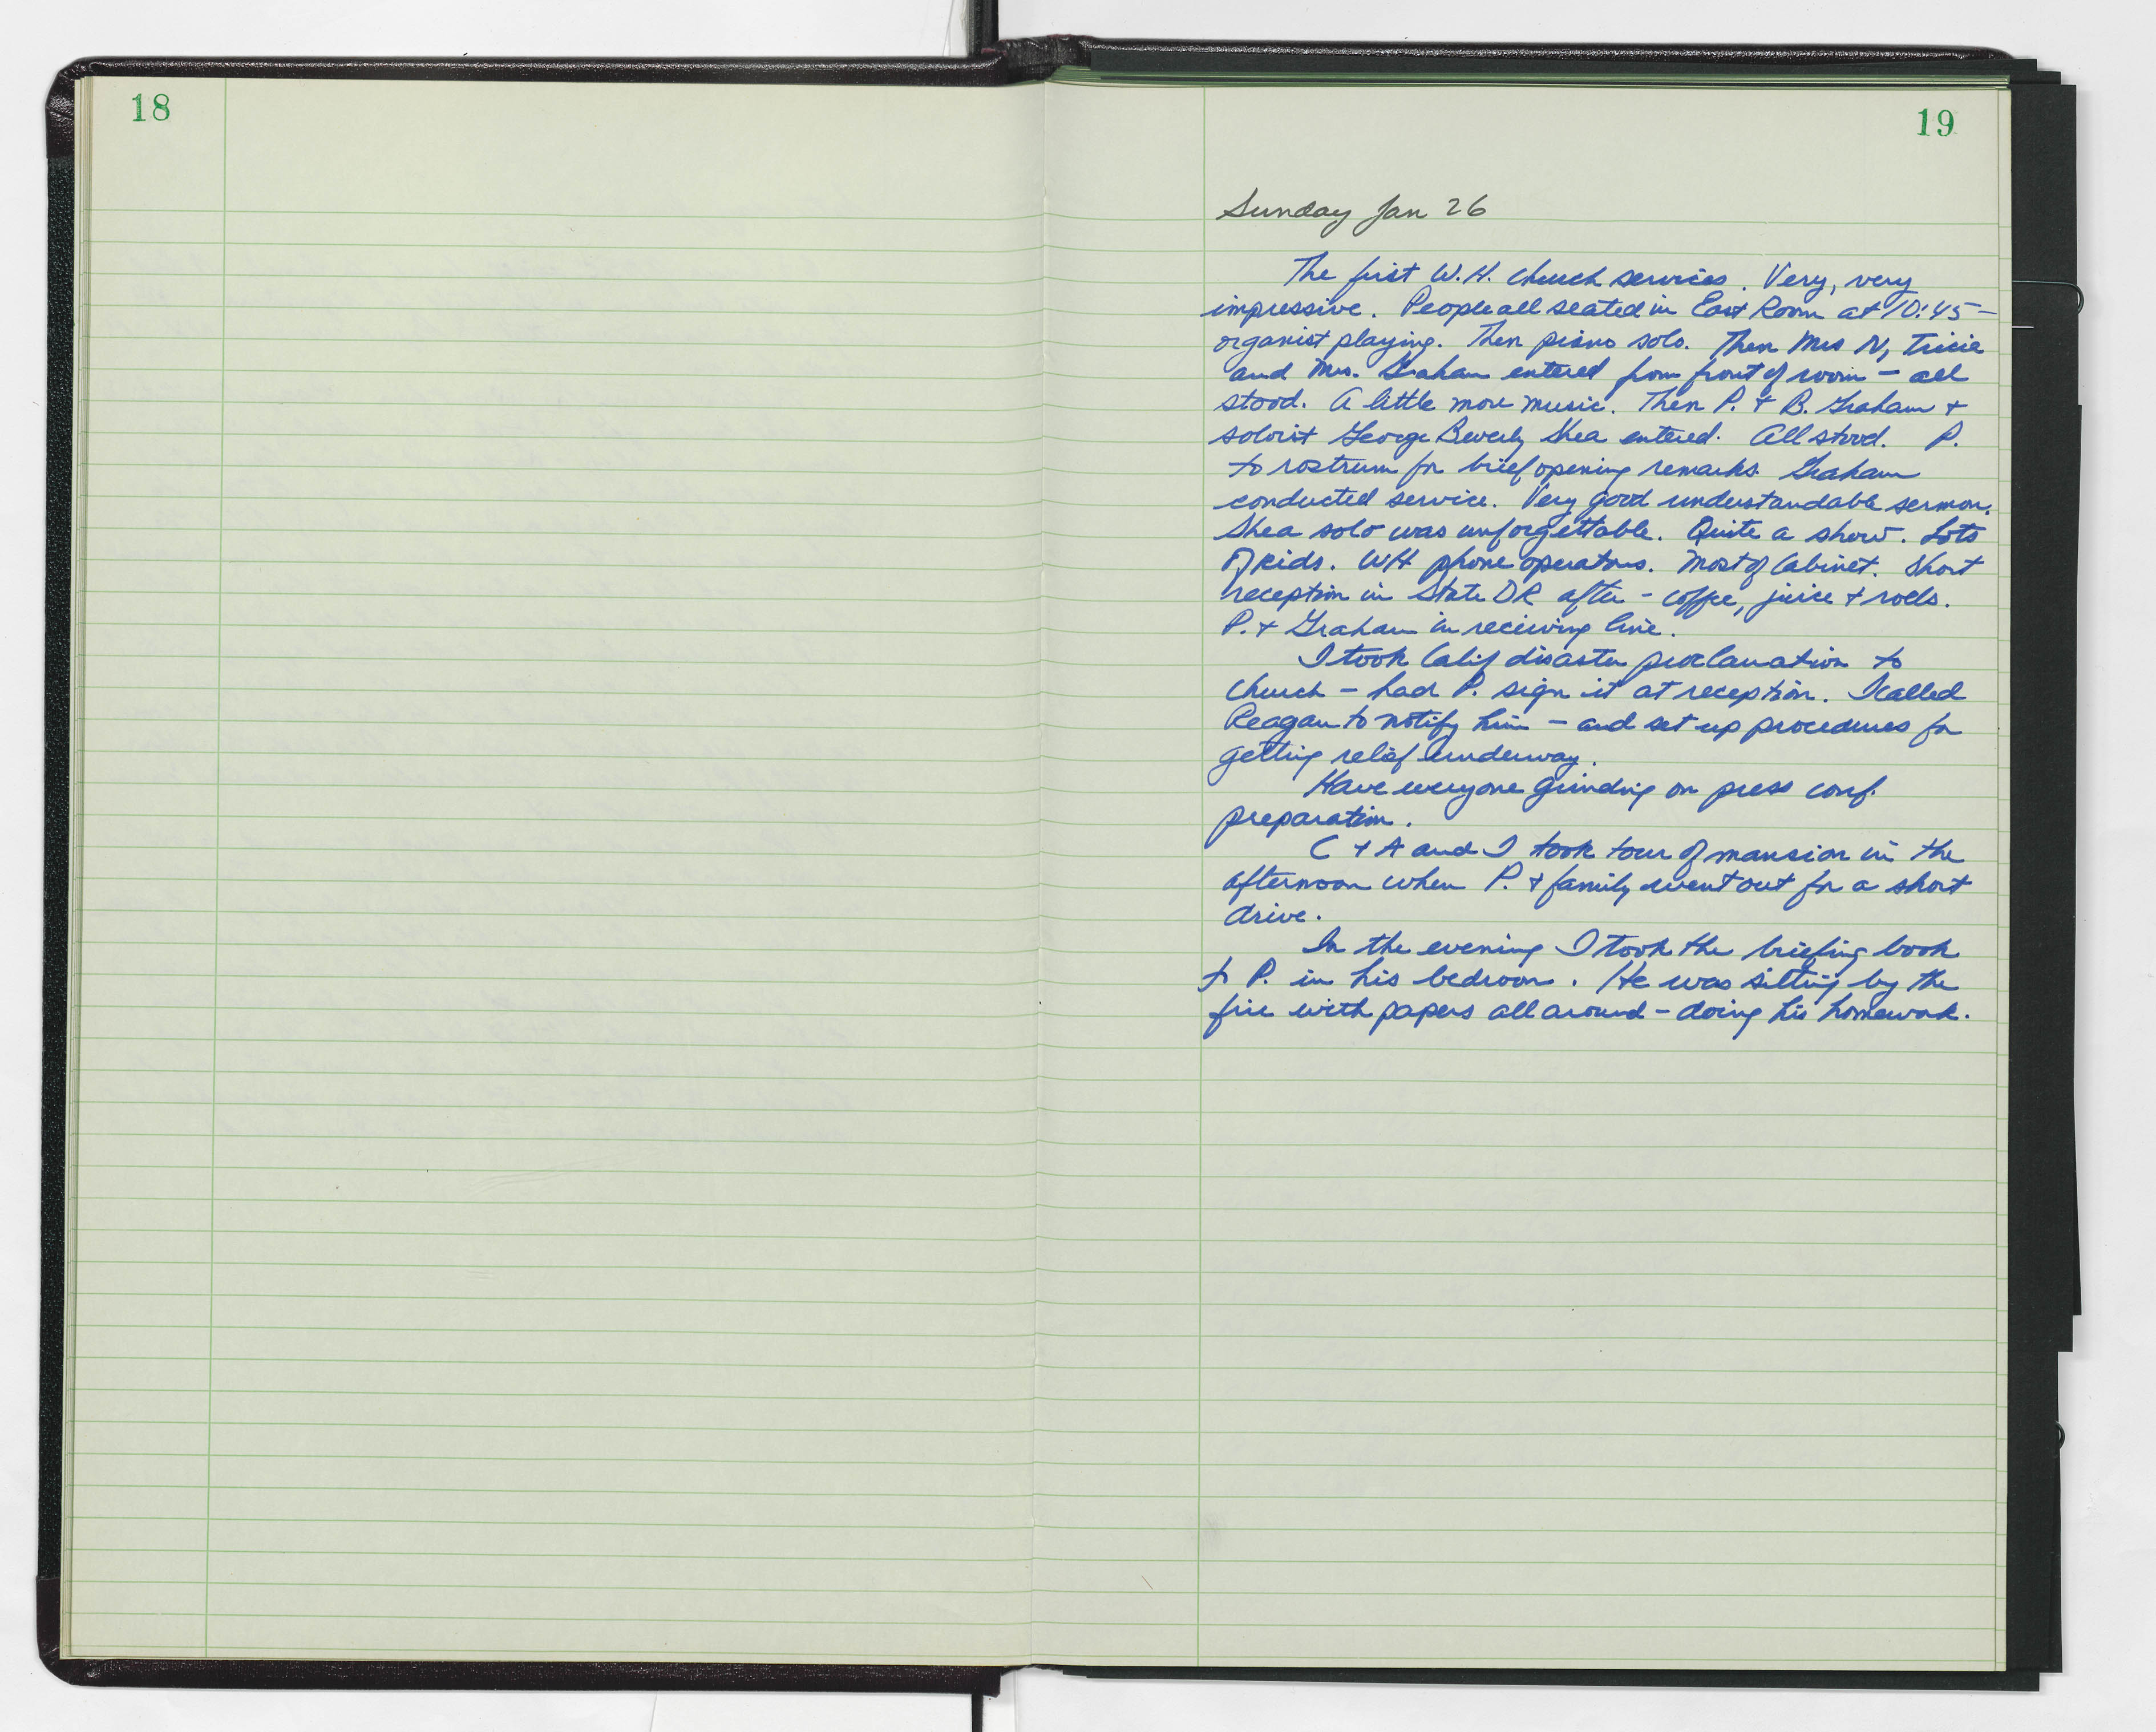 18
19
Sunday Jan 26
The first W.H. church services. Very, very
impressive. People all seated in East Room at 10:45 –
organist playing. Then piano solo. Then Mrs N, Tricia
and Mrs. Graham entered from front of room – all
stood. A little more music. Then P. + B. Graham +
soloist George Beverly Shea entered. All stood. P.
to rostrum for brief opening remarks. Graham
conducted service. Very good understandable sermon.
Shea solo was unforgettable. Quite a show. Lots
of kids. WH phone operators. Most of Cabinet. Short
reception in State DR after – coffee, juice + rolls.
P. + Graham in receiving line.
I took Calif disaster proclamation to
church – had P. sign it at reception. I called
Reagan to notify him – and set up procedures for
getting relief underway.
Have everyone grinding on press conf.
preparation.
C + A and I took tour of mansion in the
afternoon when P. + family went out for a short
drive.
In the evening I took the briefing book
to P. in his bedroom. He was sitting by the
fire with papers all around – doing his homework.